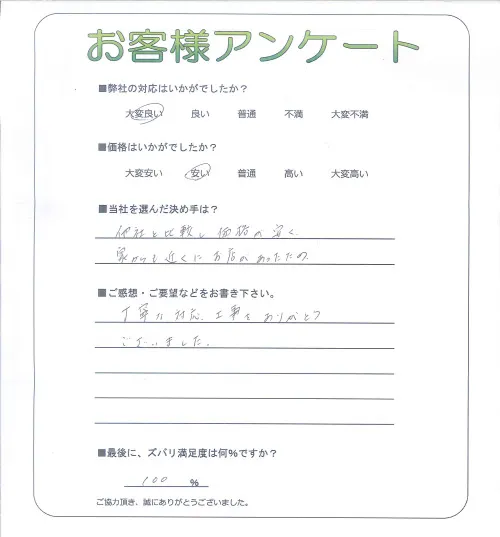 お客様アンケート
■弊社の対応はいかがでしたか？
大変良い 良い 普通 不満 大変不満
■価格はいかがでしたか？
大変安い 安い 普通 高い 大変高い
■当社を選んだ決め手は？
他社と比較し価格が安く、
家からも近くにお店があったため
■ご感想・ご要望などをお書き下さい。
丁寧な対応、工事をありがとう
ございました。
■最後に、ズバリ満足度は何%ですか？
100 %
ご協力頂き、誠にありがとうございました。